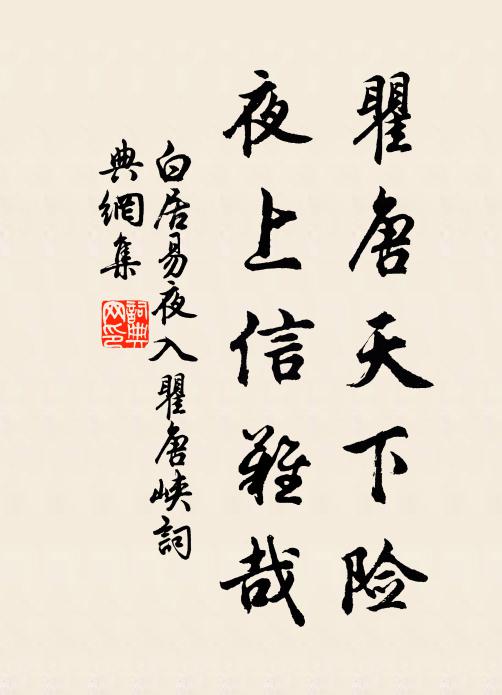 瞿唐天下险
夜上信難哉
白居易夜入瞿唐峡詞
典網集
詞典网印